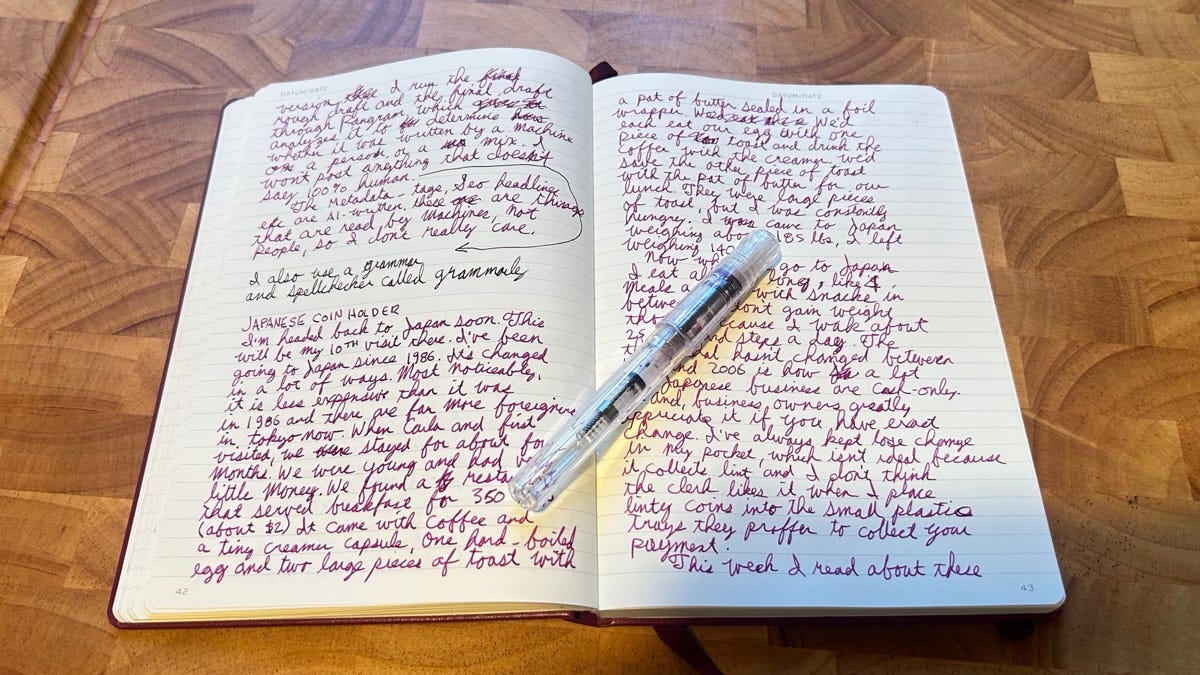 DATUM/DATE
version, I run the final
rough draft and the final draft
through Pangram, which
analyzes it to determine how
whether it was written by a machine
or a person or a mix. I
won't post anything that doesn't
say 100% human.
The Metadata - tags, Seo headlines
etc are AI-written. these are things
that are read by machines, not
people, so I don't really care.
I also use a grammar
and spellchecker called grammarly
JAPANESE COIN HOLDER
I'm headed back to Japan soon. This
will be my 10TH visit there. I've been
going to Japan since 1986. It's changed
in a lot of ways. Most noticeably,
it is less expensive than it was
in 1986 and there are far more foreigners
in tokyo now. When Carla and I first
visited, we were stayed for about
months. We were young and had
little money. We found a
that served breakfast for 350
(about $2) It came with coffee and
a tiny creamer capsule, one hard-boiled
egg and two large pieces of toast with
42
DATUM/DATE
a pat of butter sealed in a foil
wrapper. We'd
each eat our egg with one
piece of toast and drink the
coffee with the creamer. We'd
save the other piece of toast
with the pat of butter for our
lunch. They were large pieces
of toast, but I was constantly
hungry. I was came to Japan
weighing 185 lbs, I left
weighing
Now go to Japan
I eat long, like 4
meals with snacks in
don't gain weight
I walk about
steps a day. The
hasn't changed between
2006 is how a lot
Japanese business are cash-only.
and, business owners greatly
appreciate it if you have exact
change. I've always kept lose change
in my pocket, which isn't ideal because
it collects lint, and I don't think
the clerk likes it when I place
linty coins into the small plastic
trays they proffer to collect your
payment.
This week I read about these
43